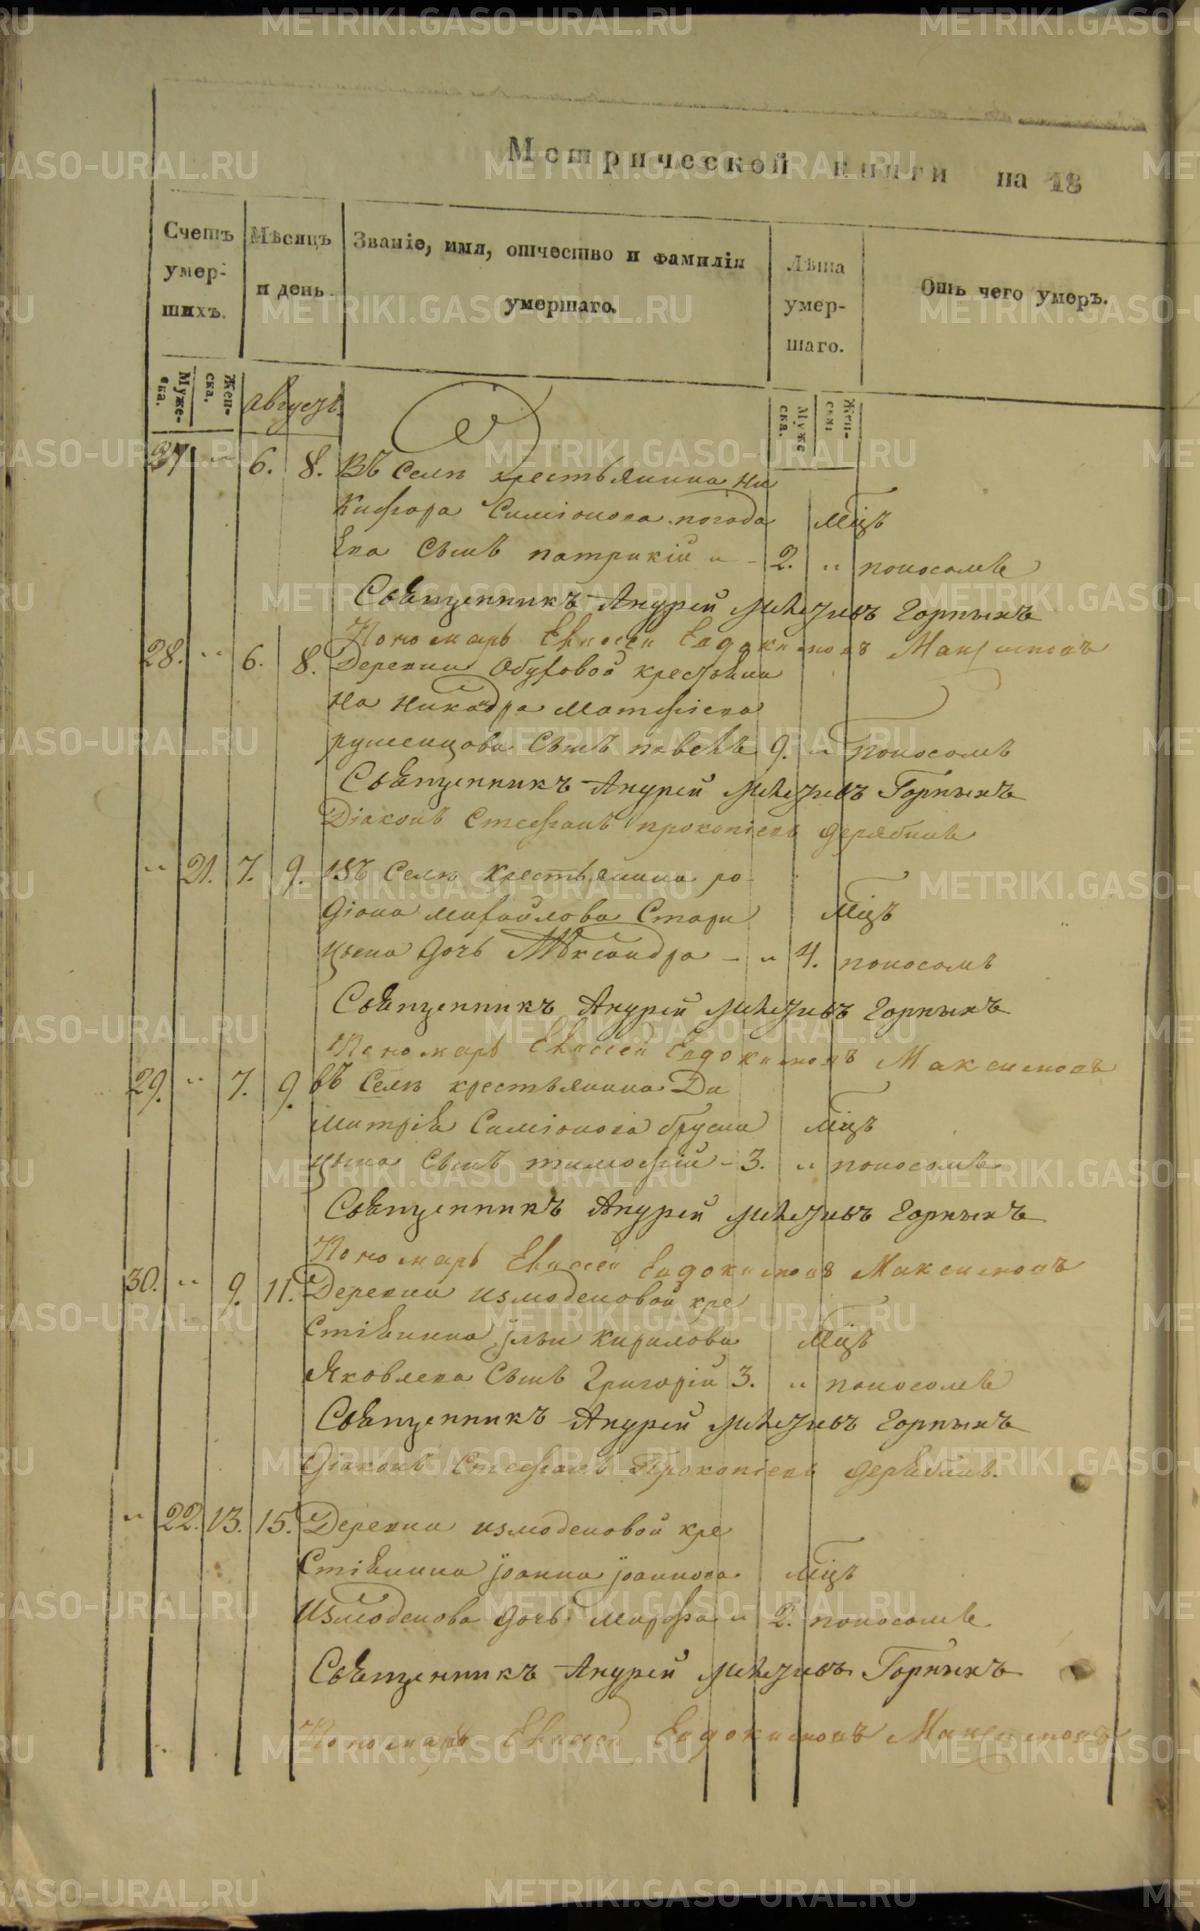 Метрической книги на 18
Счетъ умершихъ.
Мужеска.
Женска.
Мѣсяцъ и день.
Званіе, имя, отчество и фамилія умершаго.
Лѣта умершаго.
Мужеска.
Женска.
Отъ чего умеръ.
Августъ.
27 " 6. 8. Въ Селѣ крестьянина Ни
кифора Симіонова погода
ева Сынъ патрикій " - 2. мцъ " поносомъ
Священникъ Андрей Горныхъ
Пономарь Елисей Евдокимовъ Максимовъ
28. " 6. 8. Деревни Обуховой крестьяни
на Никандра Матфіева
сынъ павелъ 9. " поносомъ
Священникъ Андрей Горныхъ
Діаконъ Стефанъ прокопіевъ дерябинъ
" 21. 7. 9. Въ Селѣ Крестьянина ро
діона михайлова Стари
цына дочь Александра - " 4. мцъ поносомъ
Священникъ Андрей Горныхъ
Пономарь Елисей Евдокимовъ Максимовъ
29. " 7. 9. въ Селѣ крестьянина Ди
митрія Симіонова брусни
цына Сынъ тимофій - 3. мцъ " поносомъ
Священникъ Андрей Горныхъ
Пономарь Елисей Евдокимовъ Максимовъ
30. " 9. 11. Деревни измоденовой кре
стьянина ильи кирилова
Яковлева Сынъ Григорій 3. мцъ " поносомъ
Священникъ Андрей Горныхъ
Діаконъ Стефанъ Прокопіевъ дерябинъ.
" 22. 13. 15. Деревни измоденовой кре
стьянина іоанна іоаннова
Измоденова дочь марфа " 2. мцъ поносомъ
Священникъ Андрей Горныхъ
Пономарь Елисей Евдокимовъ Максимовъ
METRIKI.GASO-URAL.RU